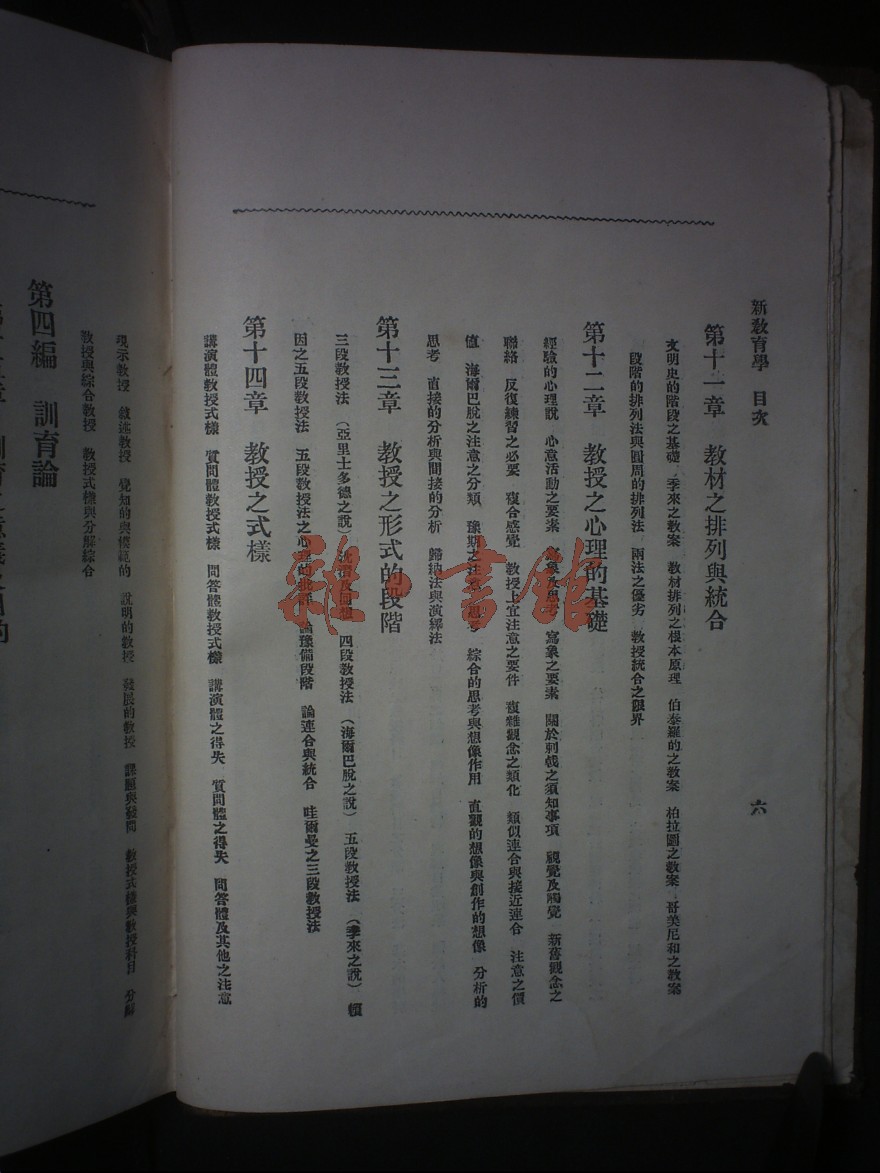 新教育學　目次
六
第十一章　教材之排列與統合
文明史的階段之基礎　季來之教案　教材排列之根本原理　伯泰羅的之教案　柏拉圖之教案　哥美尼和之教案
段階的排列法與圓周的排列法　兩法之優劣　教授統合之限界
第十二章　教授之心理的基礎
經驗的心理說　心意活動之要素　寫象及思考　寫象之要素　關於刺戟之須知事項　視覺及觸覺　新舊觀念之
聯絡　反復練習之必要　複合感覺　教授上宜注意之要件　複雜觀念之類化　類似連合與接近連合　注意之價
値　海爾巴脫之注意之分類　豫期之注意　思考　綜合的思考與想像作用　直觀的想像與創作的想像　分析的
思考　直接的分析與間接的分析　歸納法與演繹法
第十三章　教授之形式的段階
三段教授法　（亞里士多德之說）　四段教授法　（海爾巴脫之說）　五段教授法　（季來之說）　頓
因之五段教授法　五段教授法之心理的批評　論豫備段階　論連合與統合　哇爾曼之三段教授法
第十四章　教授之式樣
講演體教授式樣　質問體教授式樣　問答體教授式樣　講演體之得失　質問體之得失　問答體及其他之注意
現示教授　敘述教授　覺知的與模範的　說明的教授　發展的教授　課題與發問　教授式樣與教授科目　分解
教授與綜合教授　教授式樣與分解綜合
第四編　訓育論
雜·書館